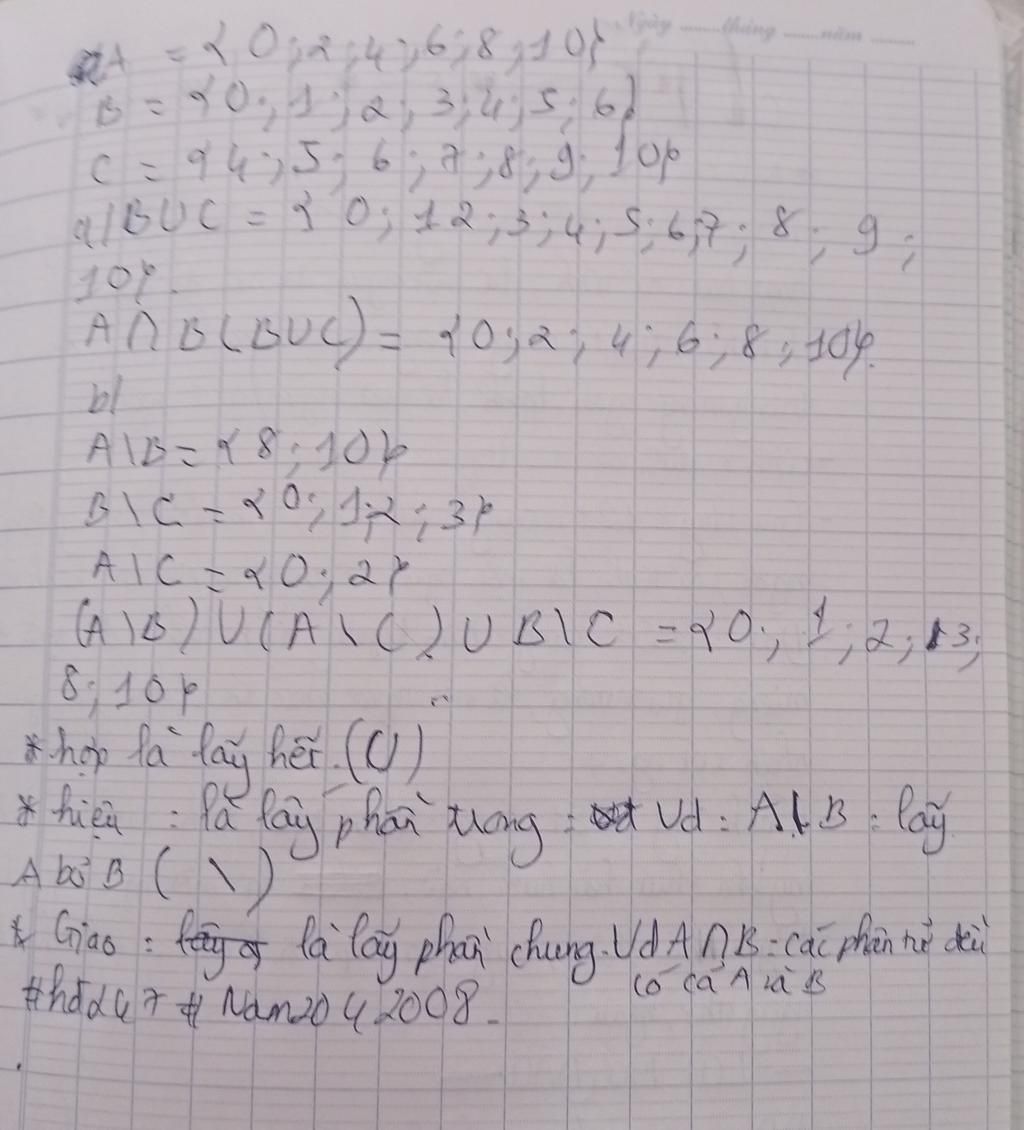 Ngày ........tháng ........năm ........
A = {0; 2; 4; 6; 8; 10}
B = {0; 1; 2; 3; 4; 5; 6}
C = {4; 5; 6; 7; 8; 9; 10}
a/ B∪C = {0; 1 2; 3; 4; 5; 6; 7; 8; 9;
10}.
A∩B(B∪C) = {0; 2; 4; 6; 8; 10}.
b/
A\B = {8; 10}
B\C = {0; 1; 2; 3}
A\C = {0; 2}
(A\B)∪(A\C)∪B\C = {0; 1; 2; 3;
8; 10}
* hợp là lấy hết. (∪)
* hiệu : là lấy phần : Vd : A\B : lấy
A bỏ B ( \ )
* Giao : là lấy phần chung. Vd A∩B : các phần tử đều
có cả A và B
#hđ247 # Nam2042008.